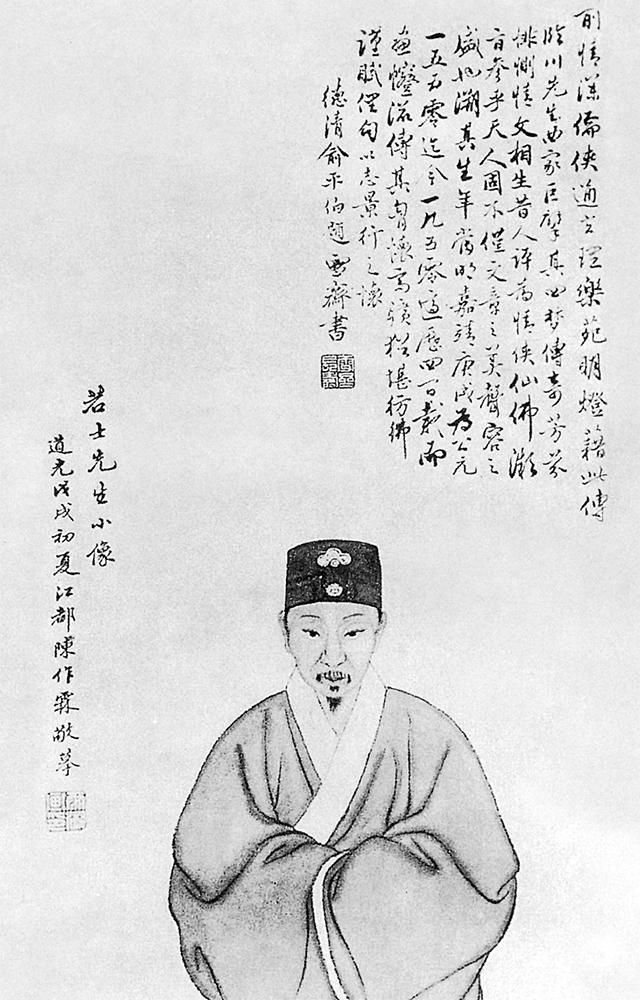 情深儒俠通玄理樂苑明燈藉此傳
臨川先生曲家巨擘其四夢傳奇芳芬
悱惻情文相生昔人評為情俠仙佛漸
旨參乎天人固不僅文章之美聲容之
盛也溯其生年當明嘉靖庚戌為公元
一五五零迄今一九五零適歷四百載而
滋傳其胷懷高曠猶堪彷彿
謹賦俚句以志景行之懷
德清俞平伯題 雪齋書
若士先生小像
道光戊戌初夏江都陳作霖敬摹